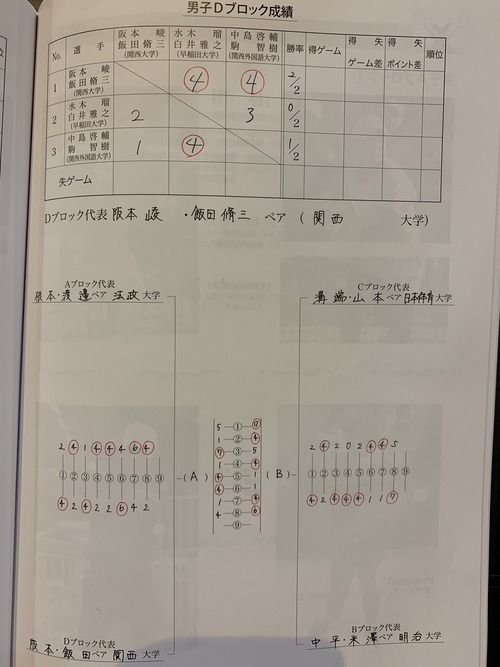 男子Dブロック成績
No. 選手 阪本 崚 飯田脩三 (関西大学) 水木 瑠 白井雅之 (早稲田大学) 中島啓輔 駒 智樹 (関西外国語大学) 勝率 得ゲーム 得失ゲーム差 得失ポイント差 順位
1 阪本 崚 飯田脩三 (関西大学) ④ ④ 2/2
2 水木 瑠 白井雅之 (早稲田大学) 2 3 0/2
3 中島啓輔 駒 智樹 (関西外国語大学) 1 ④ 1/2
失ゲーム
Dブロック代表 阪本 崚 ・飯田 脩三 ペア ( 関西 大学)
Aブロック代表
根本・渡邊ペア 法政 大学
Cブロック代表
溝端・山本ペア 日本体育大学
2 ④ 1 ④ ④ 4 ⑥ ④
① ② ③ ④ ⑤ ⑥ ⑦ ⑧ ⑨
④ 2 ④ 2 2 ⑥ 4 2
(A)
5 ① ⑦
1 ② ④
⑦ ③ 5
1 ④ ④
④ ⑤ 1
④ ⑥ 1
1 ⑦ ④
4 ⑧ ⑥
⑨
(B)
2 ④ 2 0 2 ④ ④ 5
① ② ③ ④ ⑤ ⑥ ⑦ ⑧ ⑨
④ 2 ④ ④ ④ 1 1 ⑦
Dブロック代表
阪本・飯田ペア 関西 大学
Bブロック代表
中平・米澤ペア 明治 大学